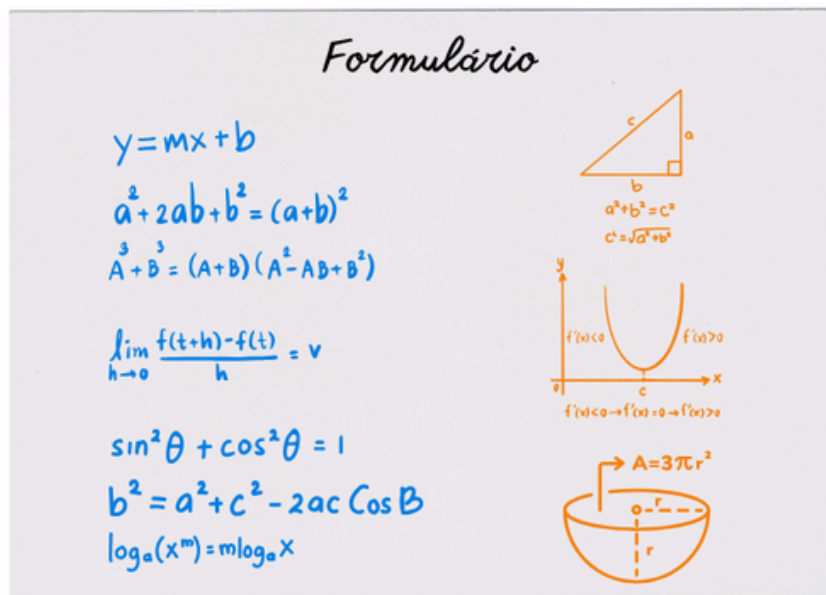 Formulário
y=mx+b
a²+2ab+b²=(a+b)²
A³+B³=(A+B)(A²-AB+B²)
lim h→0 f(t+h)-f(t)/h = v
sin²θ+cos²θ=1
b²=a²+c²-2ac CosB
logₐ(xᵐ)=mlogₐx
c
a
b
a²+b²=c²
c²=√a²+b²
y
f'(x)<0
f'(x)>0
0
c
x
f'(x)<0→f'(x)=0→f'(x)>0
A=3πr²
r
r